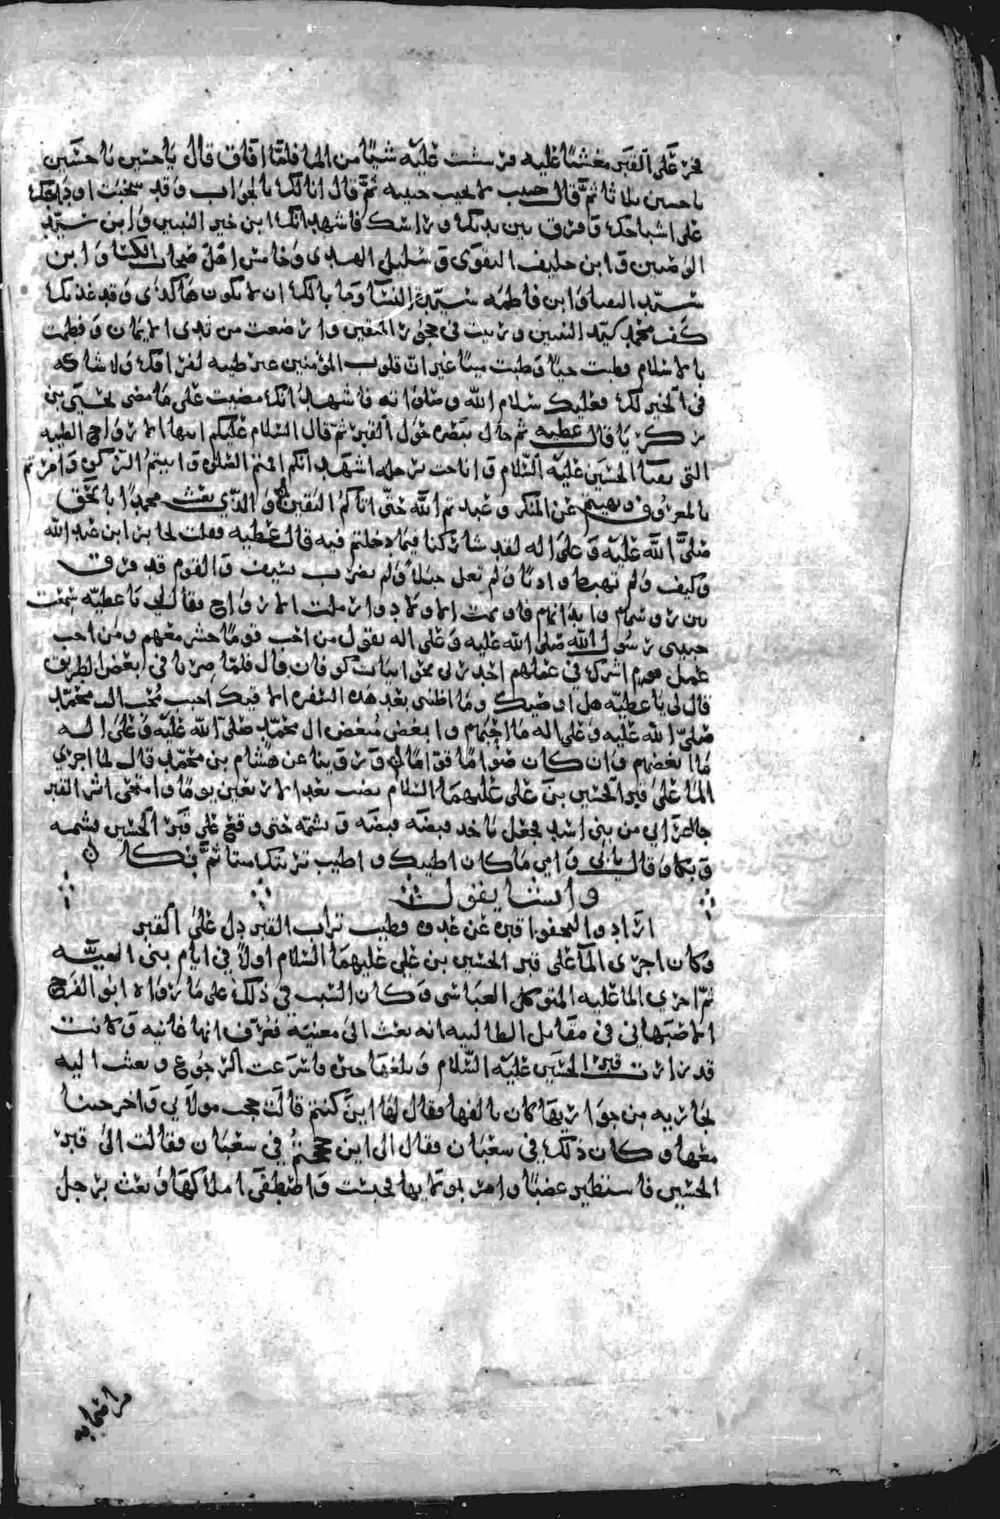 فخر على القبر مغشيا عليه فرششت عليه شيئا من الما فلما افاق قال يا حسين يا حسين
يا حسين ثلاثا ثم قال حبيب لا يجيب حبيبه ثم قال انا لك بالجواب وقد شخبت اوداجك
على اشباحك وفرق بين بدنك وراسك فاشهد انك ابن خير النبيين وابن سيد
الوصيين وابن حليف التقوى وسليل الهدى وخامس اهل صحاب الكسا وابن
سيد النقبا وابن فاطمه سيدة النسا وما بالك ان لا تكون هكذى وقد غذتك
كف محمد سيد النبيين وربيت في حجور المتقين وارضعت من ثدي الايمان وفطمت
بالاسلام فطبت حيا وطبت ميتا غير ان قلوب المؤمنين غير طيبه لفراقك ولا شاكه
في الخير لك فعليك سلام الله ورضوانه فاشهد انك مضيت على ما مضى يحيى بن
زكريا قال عطيه ثم جال ببصره حول القبر ثم قال السلام عليكم ايتها الارواح الطيبه
التي بفنا الحسين عليه السلام واناخت برحله اشهد انكم اقمتم الصلوة واتيتم الزكوة وامرتم
بالمعروف ونهيتم عن المنكر وعبدتم الله حتى اتاكم اليقين والذي بعث محمدا بالحق
صلى الله عليه وعلى اله لقد شاركنا فيما دخلتم فيه قال عطيه فقلت لجابر ابن عبد الله
وكيف ولم نهبط واديا ولم نعل جبلا ولم نضرب بسيف والقوم قد فرق
بين روسهم وابدانهم فاوتمت الاولاد وارملت الازواج فقال لي يا عطيه سمعت
حبيبي رسول الله صلى الله عليه وعلى اله يقول من احب قوما حشر معهم ومن احب
عمل قوم اشرك في عملهم اخبرني نحو ابيات كوفان قال فلما صرنا في بعض الطريق
قال لي يا عطيه هل اوصيك وما اظنني بعد هذه السفره الاقيك احبب محب ال محمد
صلى الله عليه وعلى اله ما احبهم وابغض مبغض ال محمد صلى الله عليه وعلى اله
ما ابغضهم وان كان صواما قواما وروينا عن هشام بن محمد قال لما اجري
الما على قبر الحسين بن علي عليهما السلام نضب بعد الاربعين يوما وامتحى اثر القبر
جا اعرابي من بني اسد فجعل ياخذ قبضه قبضه ويشمه حتى وقع على قبر الحسين فشمه
وبكا وقال بابي وامي ما كان اطيبك واطيب تربتك ميتا ثم بكا
وانشا يقول
ارادوا ليخفوا قبره عن عدوه وطيب تراب القبر دل على القبر
وكان اجرى الما على قبر الحسين بن علي عليهما السلام اولا في ايام بني اميه
ثم اجري الما عليه المتوكل العباسي وكان السبب في ذلك على ما رواه ابو الفرج
الاصبهاني في مقاتل الطالبيه انه بعث الى مغنية فعرف انها غائبه وكانت
قد زارت قبر الحسين عليه السلام وبلغها خبره فاسرعت الرجوع وبعث اليه
لجاريه من جواريها كان يالفها فقال لها اين كنتم قالت حجت مولاتي واخرجتنا
معها وكان ذلك في شعبان فقال الى اين حججتم في شعبان فقالت الى قبر
الحسين فاستطير غضبا وامر بمولاتها فحبست واصطفى املاكها وبعث برجل
من اصحابه